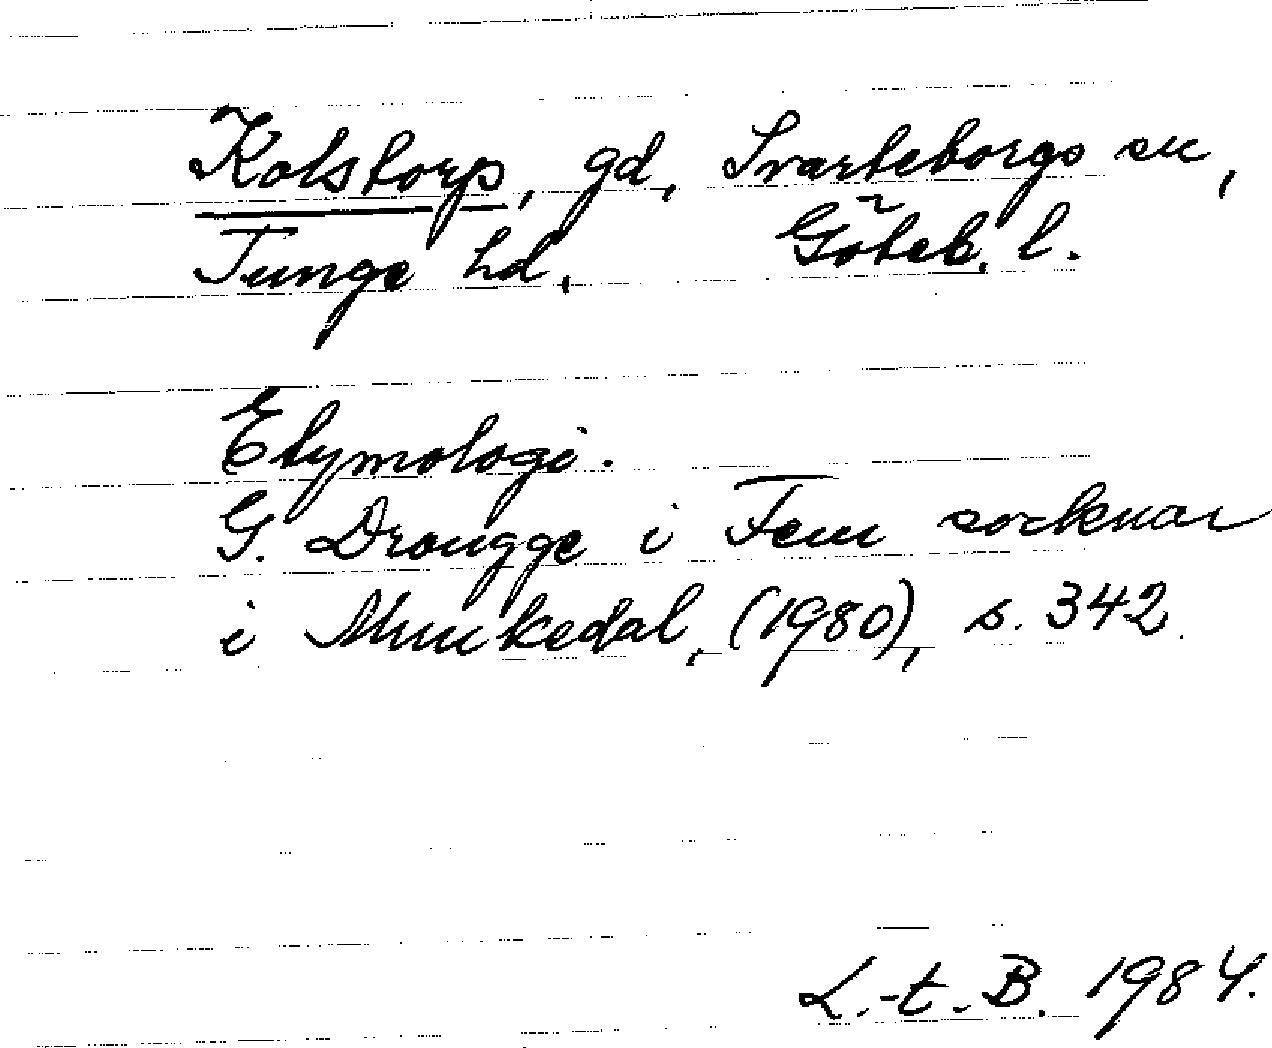 Kolstorp, gd, Svarteborgs sn,
Tunge hd, Göteb. l.
Etymologi.
G. Drougge i Fem socknar
i Munkedal, (1980), s. 342.
L.-t. B. 1984.